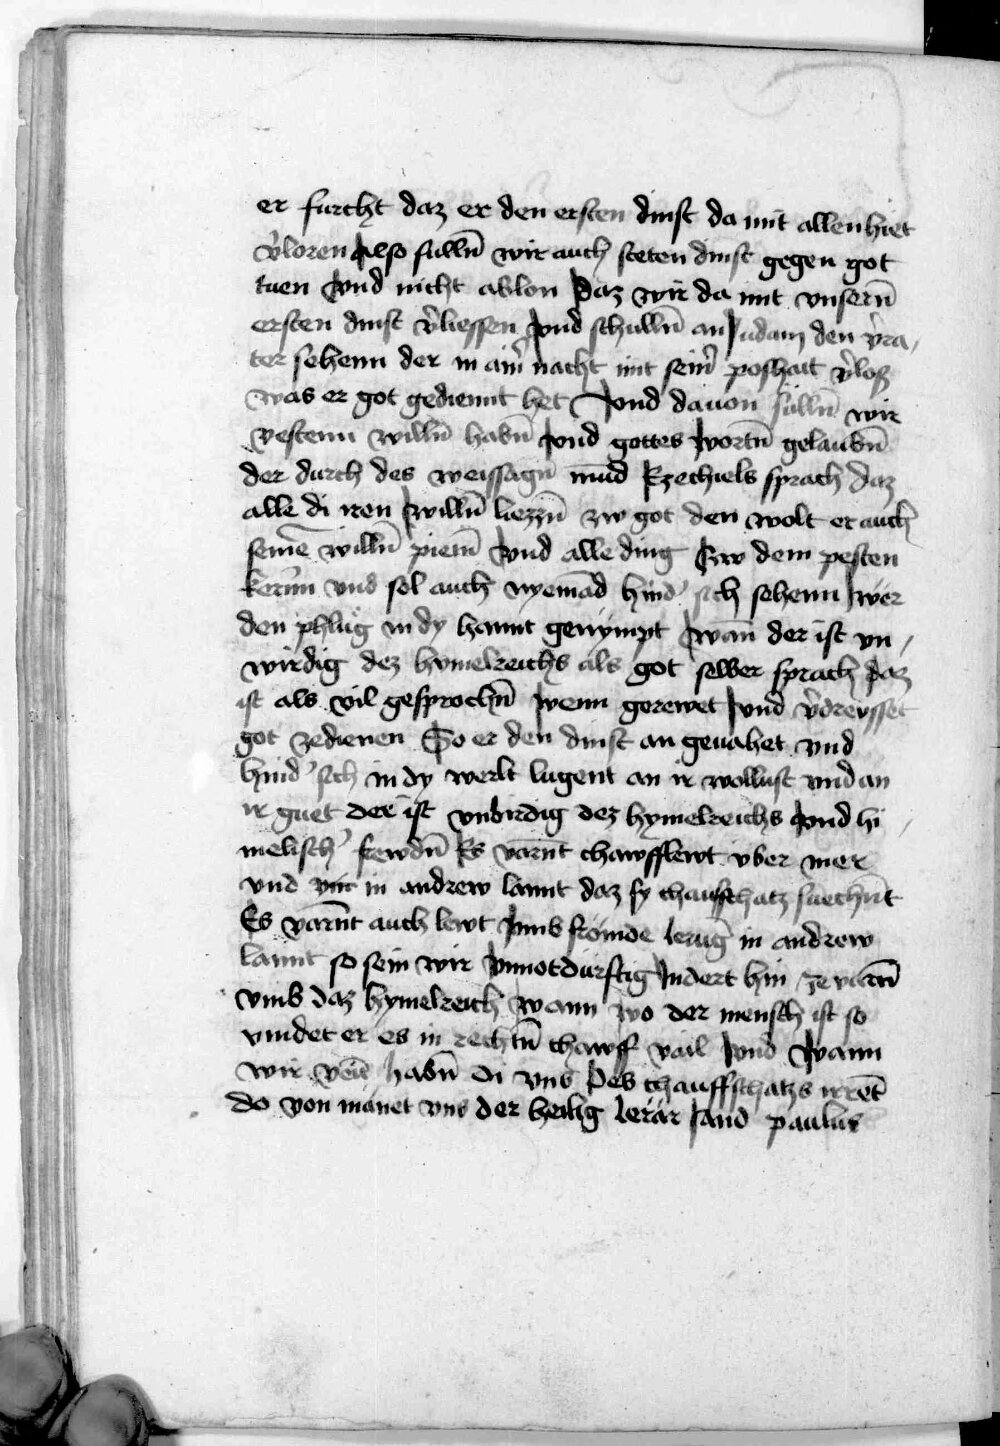 er furcht daz er den ersten dinst da mit allen hiet
v̓loren Also sulln̄ wir auch steten dinst gegen got
tuen Vnd nicht ablon Daz wir da mit vnsern̄
ersten dinst v̓liessen Vnd schulln̄ an Judam den v̓ra,
ter sehenn der in ain̓ nacht mit sein̓ poshait v̓los
was er got gediennt het Vnd dauon sulln̄ wir
vestenn willn̄ habn̄ Vnd gottes wortn̄ gelaubn̄
der durch des weissagn̄ mūd Ezechiels sprach daz
alle di iren willn̄ liezzn̄ zw got den wolt er auch
seinē willn̄ pietn̄ Vnd alle ding Zw dem pesten
kern̄n vnd sol auch nyemād hind̓ sich sehenn Wer
den phlug in dy hannt genympt Wann der ist vn,
wirdig dez hymelreichs als got selber sprach Daz
ist als vil gesprochn̄ Wenn gerewet Vnd v̓dreysset
got zedienen So er den dinst an geuahet vnd
hind̓ sich in dy werlt lugent an ir wollust vnd an
ir guet der ist vnbirdig dez hymelreichs Vnd hi,
melisch̓ frewdn̄ Es varn̄t chawfflewt vber mer
vnd in andrew lannt daz sy chaufschatz suechn̄t
Es varn̄t auch lewt Vmb frömde lerug in andrew
lannt so sein wir Vnnotdurftig Indert hin ze varn̄
vmb daz hymelreich Wann wo der mensch ist so
vindet er es in rechtn̄ chawff vail Vnd Wann
wir habn̄ di vns Des chauffschatzs irrēt
do von manet vns der heilig lerär Sand paulus